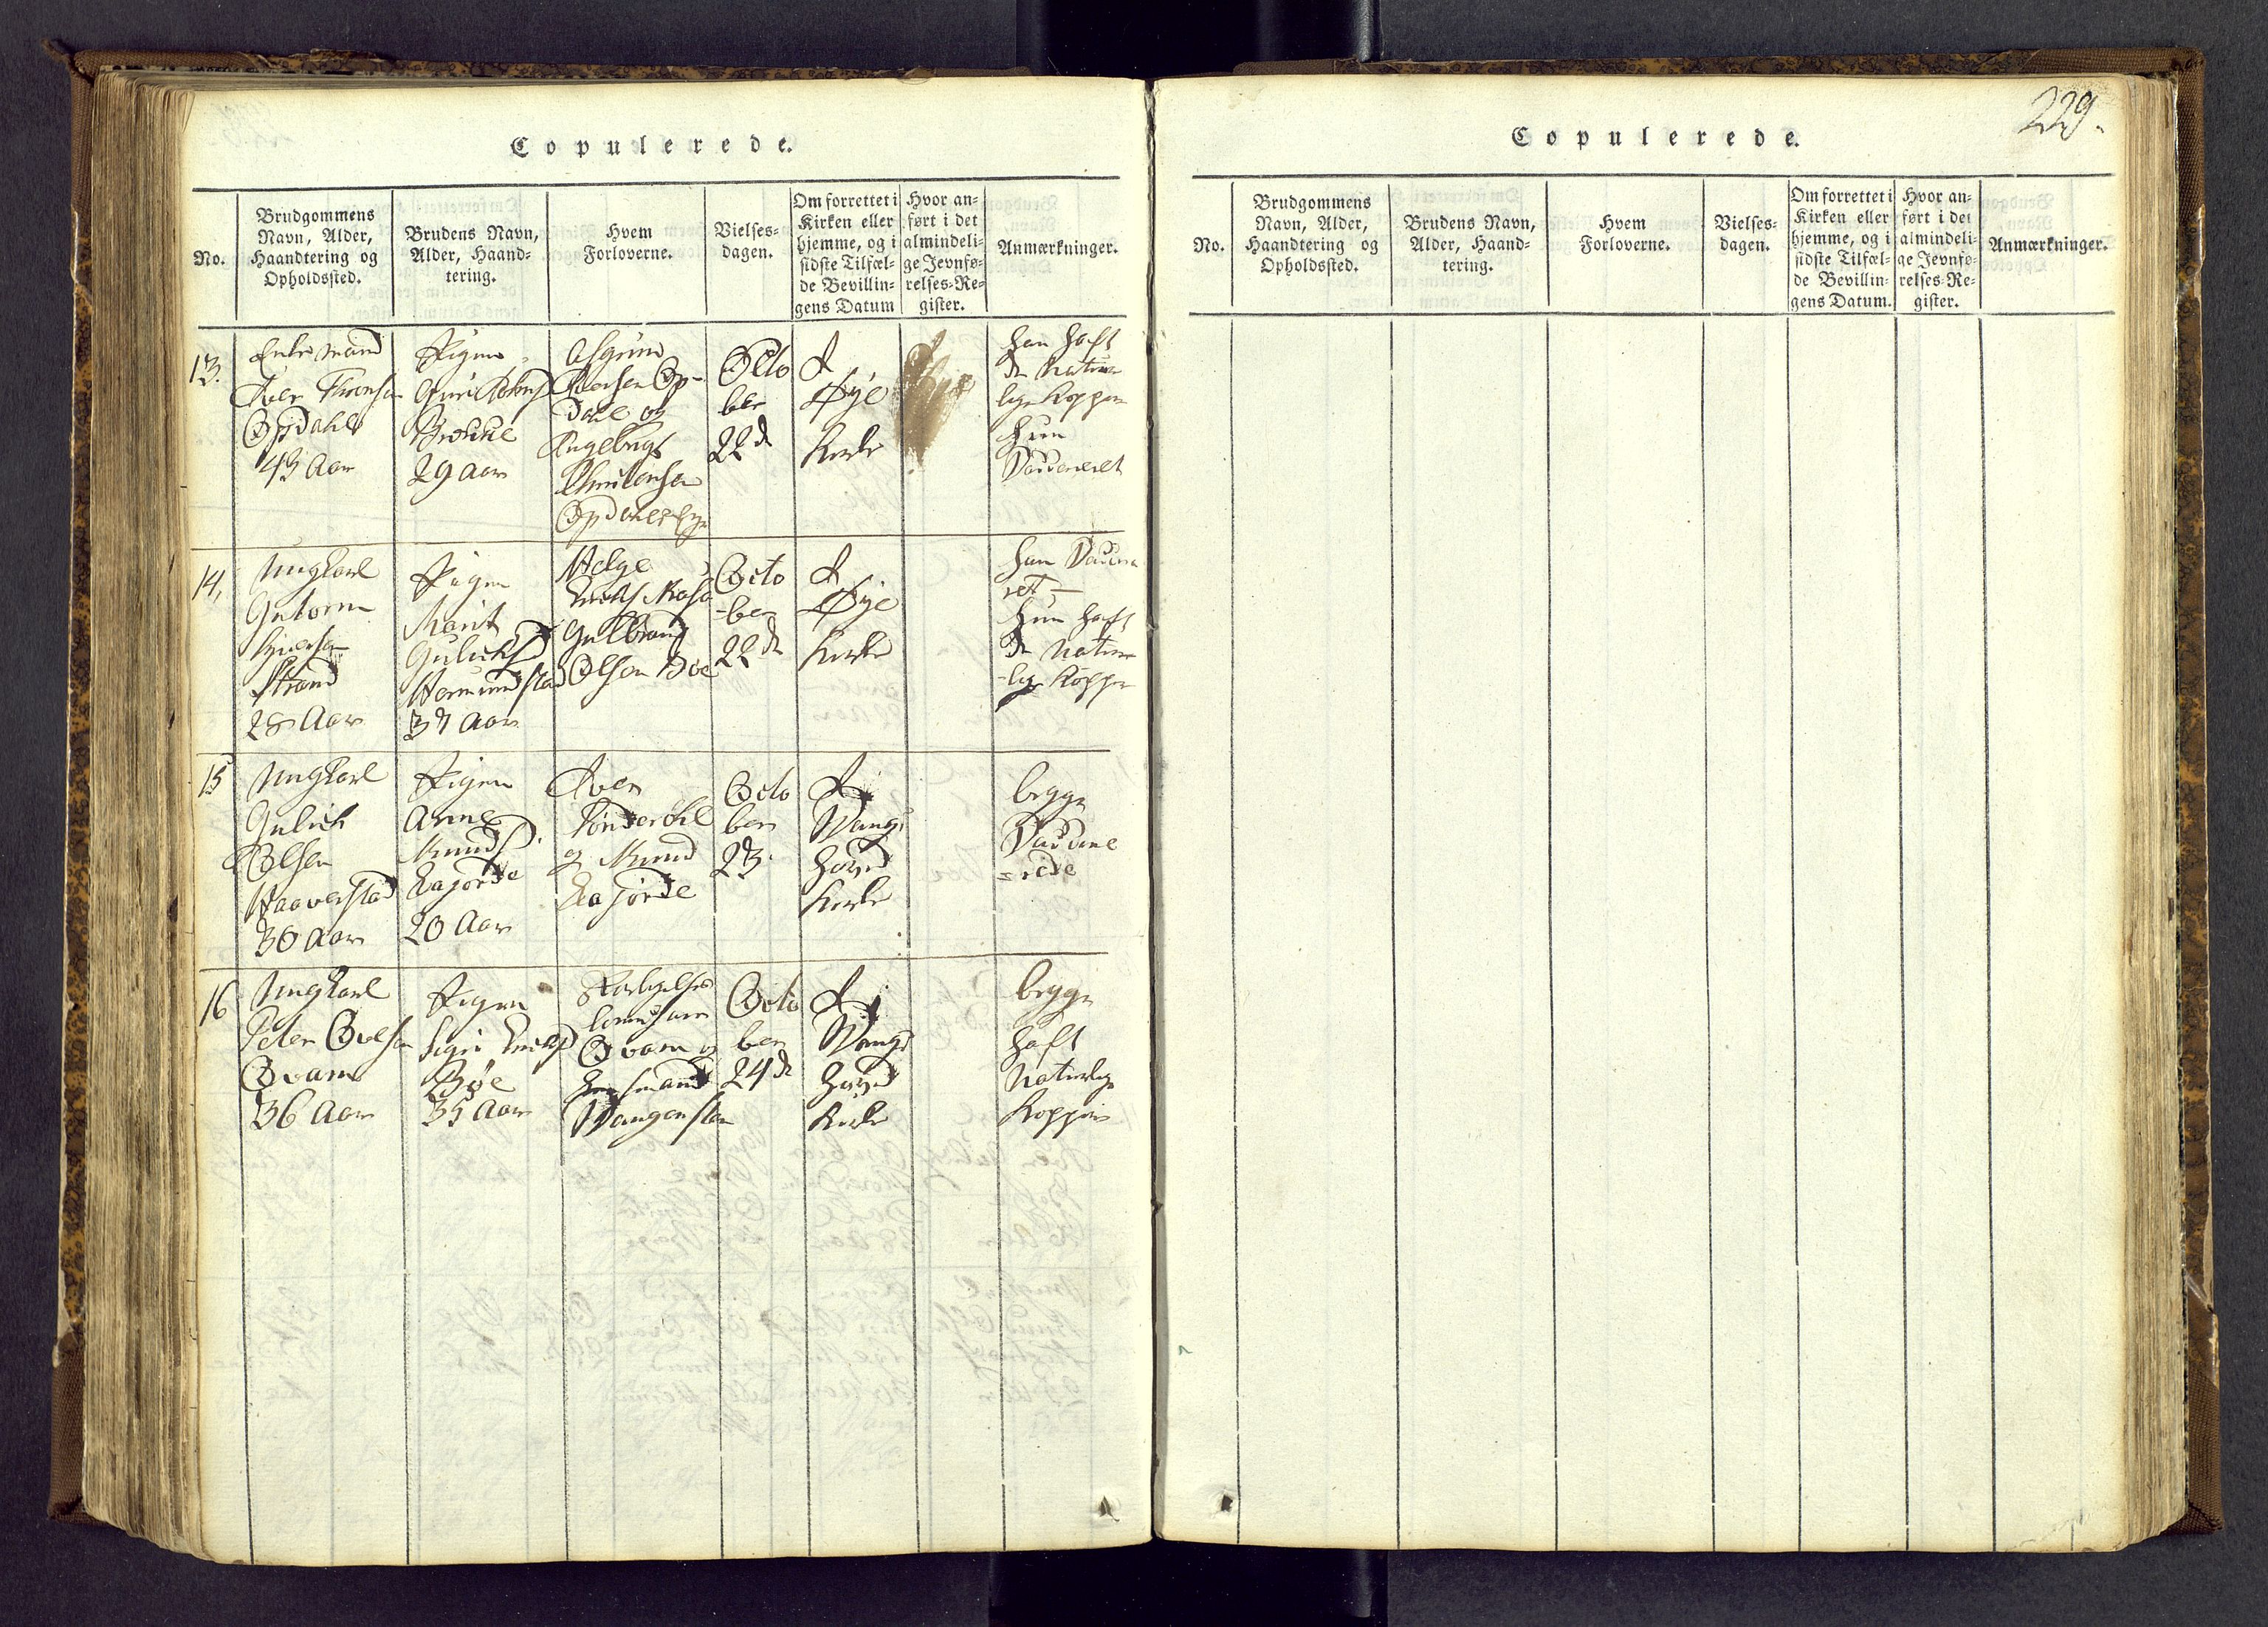 Copulerede.
No.
Brudgommens
Navn, Alder,
Haandtering og
Opholdssted.
Brudens Navn,
Alder, Haand-
tering.
Hvem
Forloverne.
Vielses-
dagen.
Om forrettet i
Kirken eller
hjemme, og i
sidste Tilfæl-
de Bevillin-
gens Datum
Hvor an-
ført i det
almindeli-
ge Jevnfø-
relses-Re-
gister.
Anmærkninger.
13.
Enkemand
Iver Thronsen
Opdahl
43 Aar
Pigen
29 Aar
Asgrim
Iversen Op-
dale og
Christensen
Octo
ber
22de
I
Øye
Kirke
han haft
de Natur
lige Kopper
hun
Vaccineret
14,
Ungkarl
Gutorm
Strand
28 Aar
Pigen
Marit
Guliksd
Hermundstad
37 Aar
Helge
Gulbrand
Olsen Boe
Octo
-ber
22de
I
Øye
Kirke
han Vaccine
ret -
hun haft
de Natur
-lige Kopper
15
Ungkarl
Gulich
Olsen
Haaverstad
30 Aar
Pigen
Anne
Knudsd.
20 Aar
Iver
og Knud
Octo
ber
23.
I
Wangs
hoved
Kirke
begge
Vaccine
=rede
16
Ungkarl
Peter
Qvam
36 Aar
Pigen
Sigri
Bøe
35 Aar
Qvam og
Wangensten
Octo
ber
24de
I
Wangs
hoved
Kirke
begge
haft
Naturlige
Kopper
229.
Copulerede.
No.
Brudgommens
Navn, Alder,
Haandtering og
Opholdssted.
Brudens Navn,
Alder, Haand-
tering.
Hvem
Forloverne.
Vielses-
dagen.
Om forrettet i
Kirken eller
hjemme, og i
sidste Tilfæl-
de Bevillin-
gens Datum.
Hvor an-
ført i det
almindeli-
ge Jevnfø-
relses-Re-
gister.
Anmærkninger.